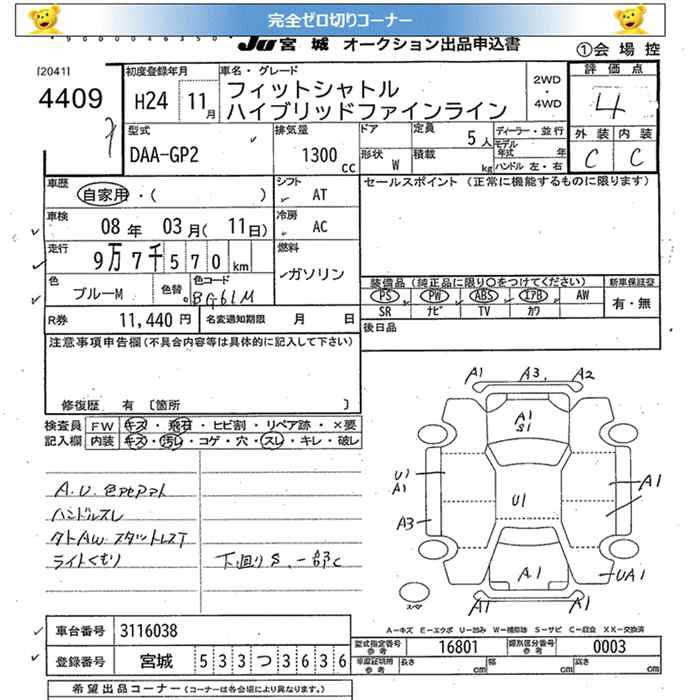 完全ゼロ切りコーナー
JU 宮城 オークション出品申込書
①会場控
[2041]
4409
初度登録年月
H24 11月
車名・グレード
フィットシャトル
ハイブリッドファインライン
2WD
・
4WD
評価点
4
外装 内装
C C
型式
DAA-GP2
排気量
1300 cc
ドア
形状 W
定員 5人
積載 kg
ディーラー・並行
モデル年式 年
ハンドル 左・右
車歴
自家用・( )
シフト
AT
セールスポイント (正常に機能するものに限ります)
車検
08年 03月(11日)
冷房
AC
走行
9万7千570km
燃料
ガソリン
色 ブルーM 色替 色コード BG61M
装備品(純正品に限り○をつけてください) 新車保証書
PS PW ABS エアB AW 有・無
SR ナビ TV カワ
R券 11,440円 名変通知期限 月 日
後日品
注意事項申告欄(不具合内容等は具体的に記入して下さい)
修復歴 有 〔箇所 〕
検査員 FW キズ・飛石・ヒビ割・リペア跡・×要
記入欄 内装 キズ・汚レ・コゲ・穴・スレ・キレ・破レ
A1 A3. A2
A1
S1
U1
A1
U1
A1
A3
A1
UA1
A1 A1
スペア
A.U.
ハンドルスレ
スタットレスT
ライトくもり 下廻りS.一部C
A-キズ E-エクボ U-凹み W-補修跡 S-サビ C-腐食 XX-交換済
車台番号 3116038
型式指定番号 参考 16801 類別区分番号 参考 0003
登録番号 宮城 533つ3636
車庫証明用 参考 長さ cm 幅 cm 高さ cm
希望出品コーナー (コーナーは各会場により異なります。)